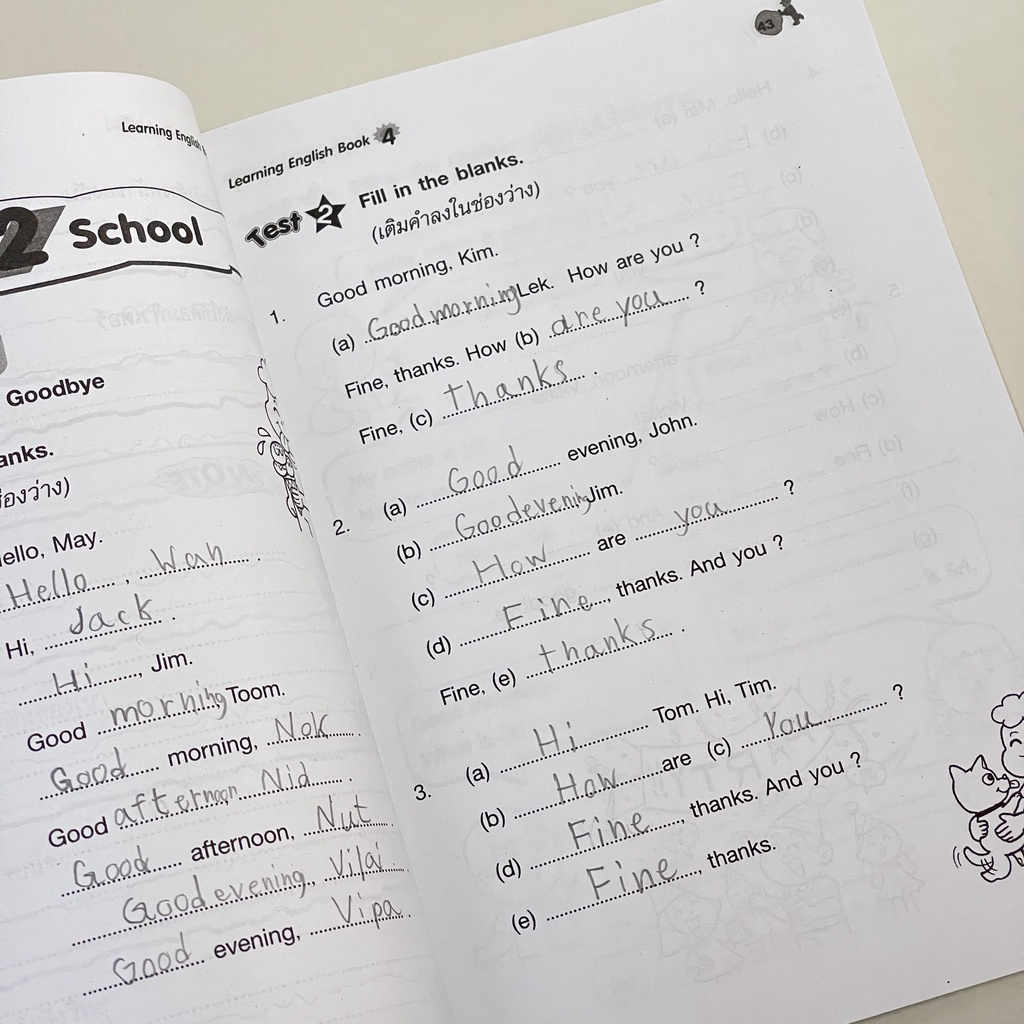 Learning English
2 School
Goodbye
anks.
ช่องว่าง)
ello, May.
Hello, Wan
Hi, Jack.
Hi, Jim.
Good morning Toom.
Good morning, Nok.
Good afternoon Nid.
Good afternoon, Nut
Good evening, Vilai.
Good evening, Vipa.
43
Learning English Book 4
Test 2 Fill in the blanks.
(เติมคำลงในช่องว่าง)
1. Good morning, Kim.
(a) Good morning Lek. How are you ?
Fine, thanks. How (b) are you ?
Fine, (c) thanks.
2. (a) Good evening, John.
(b) Good evening Jim.
(c) How are you ?
(d) Fine, thanks. And you ?
Fine, (e) thanks.
3. (a) Hi Tom. Hi, Tim.
(b) How are (c) You ?
(d) Fine, thanks. And you ?
(e) Fine, thanks.